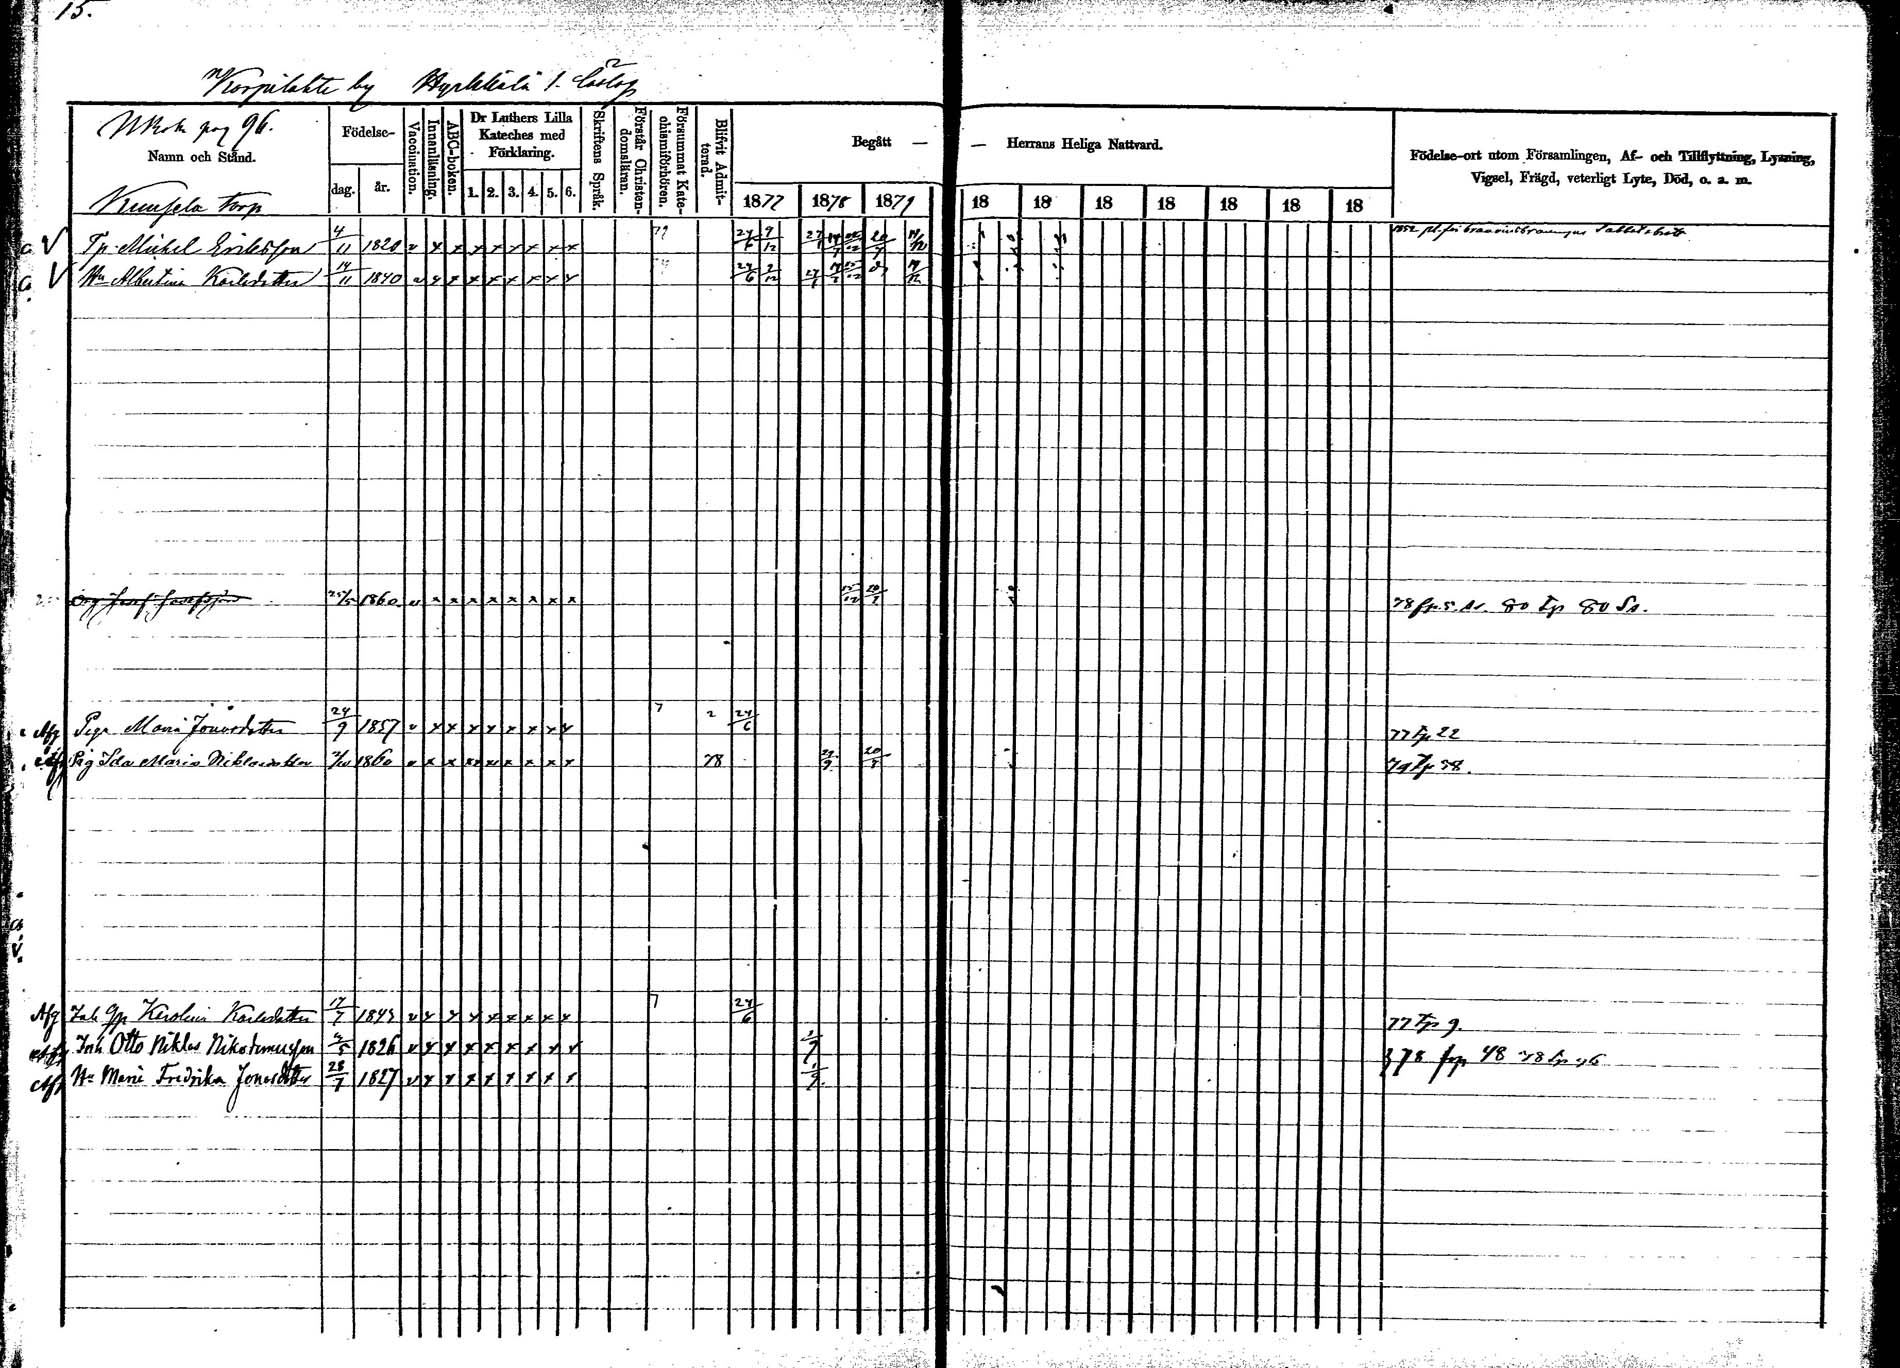 15.
Korpilahte by Hyrkkälä 1.
N Kirk. pag 96.
Namn och Stånd.
Födelse-
dag.
år.
Vaccination.
Innanläsning.
ABC-boken.
Dr Luthers Lilla Kateches med Förklaring.
1. 2. 3. 4. 5. 6.
Skriftens Språk.
Förstår Christendomsläran.
Försummat Katechismiförhören.
Blifvit Admitterad.
Begått — — Herrans Heliga Nattvard.
1877 1878 1879 18 18 18 18 18 18 18
Födelse-ort utom Församlingen, Af- och Tillflyttning, Lysning,
Vigsel, Frägd, veterligt Lyte, Död, o. a. m.
Kuusela torp
a V Tp. Michel Eriksson 4/11 1820 v x x x x x x x x 79 24/6 9/12 20/7 14/12 1852 pl. för
a V Hu Albertina Karlsdotter 14/11 1840 v x x x x x x x x 24/6 9/12 14/12
Josef Josefsson 25/5 1860 v x x x x x x x x 15/12 20/7 80 Tp 80 Ss.
Afg Piga Maria Jonasdotter 24/9 1857 v x x x x x x x x 7 2 24/6 77 Tp 22
Afg Pig Ida Maria Niklasdotter 1860 v x x x x x x x x 78 20/7 79 Tp 38.
Afg Inh Gp Karolina Karlsdotter 17/7 1843 v x x x x x x x x 7 24/6 77 Tp 9.
Afg Inh Otto Niklas Nikodemusson 4/5 1826 v x x x x x x x x 1/9 } 78 frp 48 78 Tp 46
Afg Hu Maria Fredrika Jonasdotter 28/7 1827 v x x x x x x x x 1/9